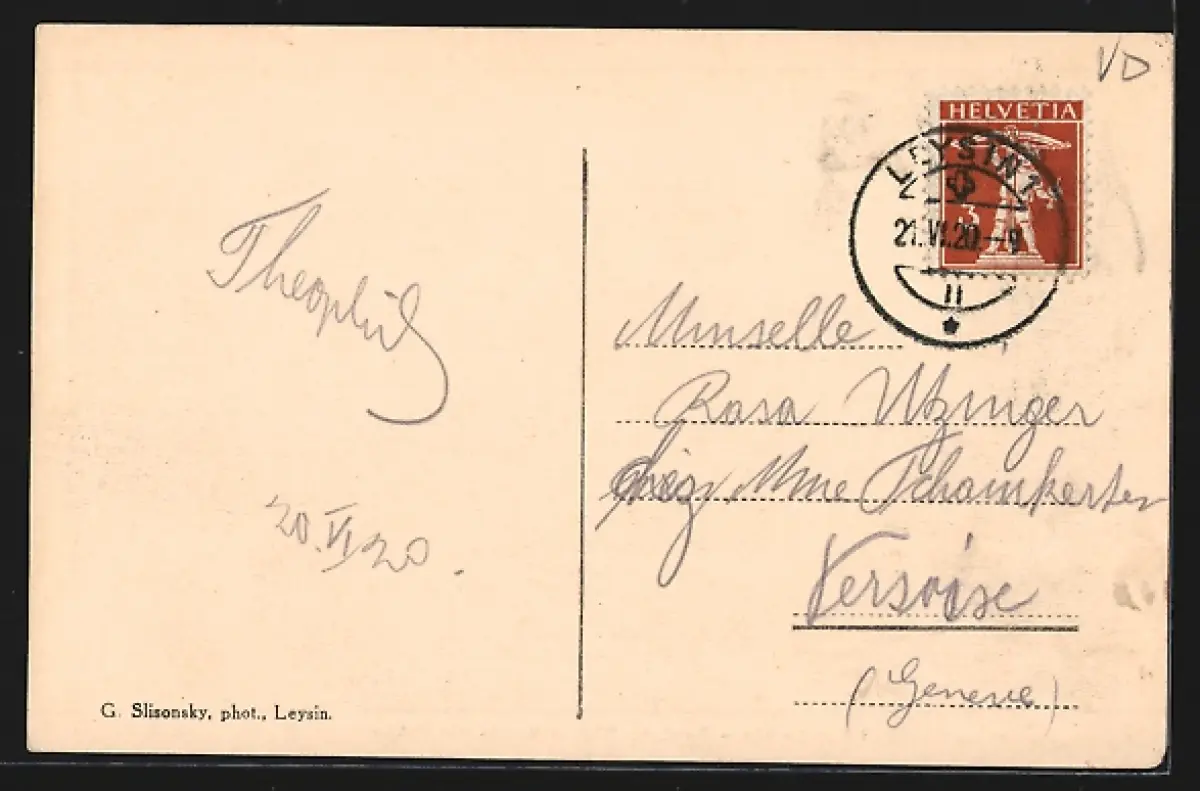 VD
HELVETIA
3
LEYSIN 1
21.VI.20.–9
II
Theophil
20.VI 20.
Mmselle
Rosa Utzinger
chez Mme
Versoixe
(Geneve)
G. Slisonsky, phot., Leysin.